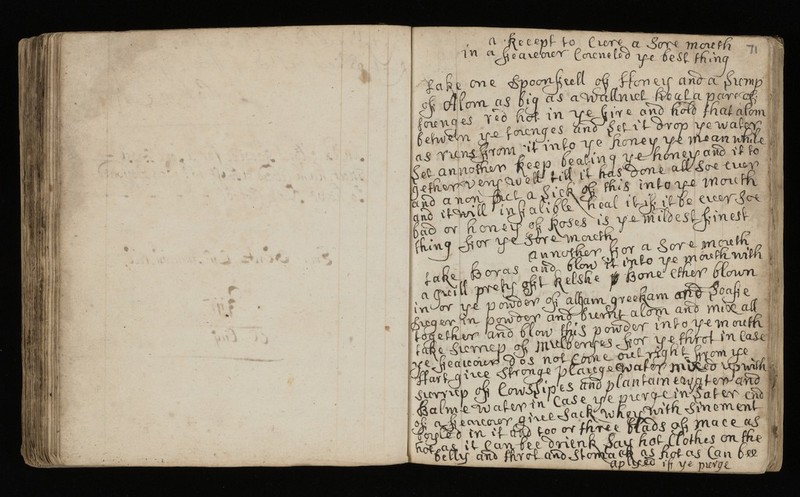 71
a Recept to Cure a Sore mouth
in a feaviour Counted ye best thing
Take one Spoonfull of Honey and a Lump
of Alom as big as a wallnut heat a pare of
tounges red hot in ye fire and hold that alom
betwen ye tounges and Let it drop ye water
as runs from it into ye honey ye mean while
Let annother keep beating ye honey and it to
gether very well till it has done all Soe ever
and a non put a Lick of this into ye mouth
and it will infalible heal it if it be ever Soe
bad or honey of Roses is ye mildest finest
thing for ye Sore mouth
annother for a Sore mouth
take Boras and blow it into ye mouth with
a quill prety oft Bone Ether blown
in or ye powder of allbam greekam and Loafe
Suger in powder and burnt alom and mix all
together and blow this powder into ye mouth
take Surrep of Mulberyes for ye throt in Case
ye feaviour dos not Come out right from ye
Hart give Stronge plauge water mixed up with
Surrep of Cowslipes and plantane water and
Balme water in Case ye purge in Later end
of a feaviour give Sack whey with Sinement
boyled in it and too or three blads of mace as
hot as it Can bee drienk Lay hot Clothes on the
belly and throt and Stomack as hot as Can bee
aplyed if ye purge